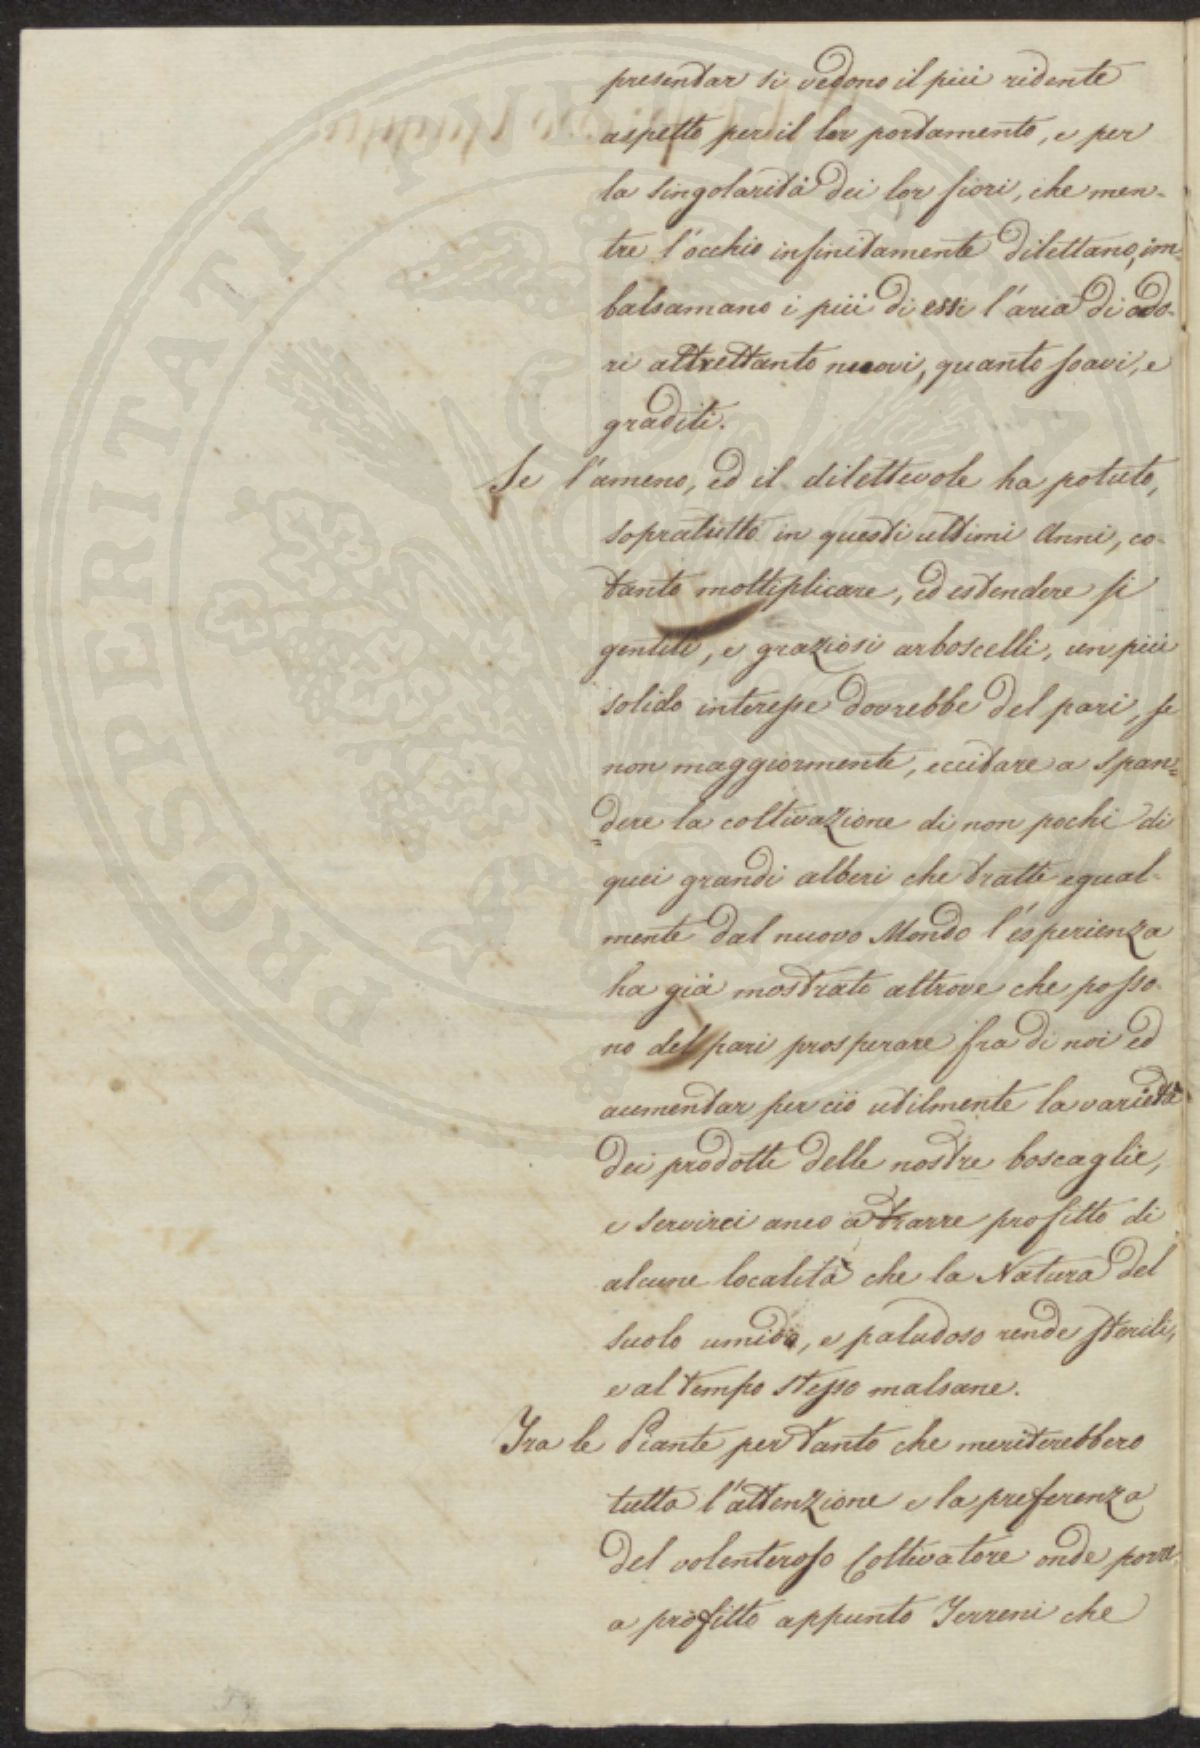 presentar si vedono il più ridente
aspetto per il lor portamento, e per
la singolarità dei lor fiori, che men-
tre l'occhio infinitamente dilettano, im-
balsamano i più di essi l'aria di odo-
ri altrettanto nuovi, quanto soavi, e
graditi.
Se l'ameno, ed il dilettevole ha potuto,
sopratutto in questi ultimi Anni, co-
tanto moltiplicare, ed estendere si
gentili, e graziosi arboscelli, un più
solido interesse dovrebbe del pari, se
non maggiormente, eccitare a span=
=dere la coltivazione di non pochi di
quei grandi alberi che tratti egual-
mente dal nuovo Mondo l'esperienza
ha già mostrato altrove che posso-
no del pari prosperare fra di noi ed
aumentar per ciò utilmente la varietà
dei prodotti delle nostre boscaglie,
e servirci anco a trarre profitto di
alcune località che la Natura del
suolo umido, e paludoso rende sterili,
e al tempo stesso malsane.
Fra le Piante per tanto che meriterebbero
tutta l'attenzione e la preferenza
del volenteroso Coltivatore onde porre
a profitto appunto Terreni che
PROSPERITATI